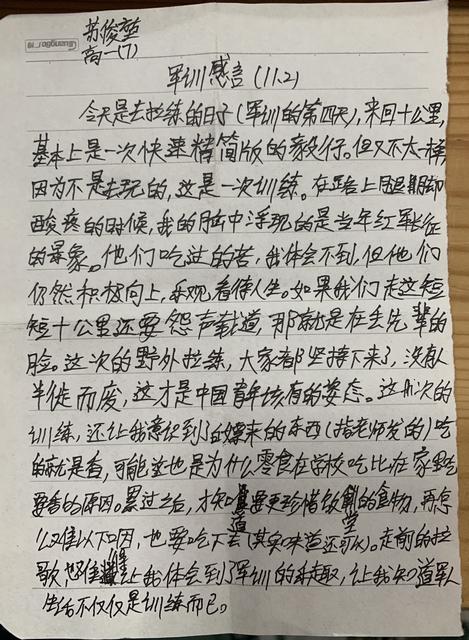 Guangbo_19
苏俊堃
高一(7)
军训感言(11.2)
今天是去拉练的日子(军训的第四天),来回十公里,
基本上是一次快速精简版的毅行。但又不太一样,
因为不是去玩的,这是一次训练。在路上腿脚
酸疼的时候,我的脑中浮现的是当年红军长征
的景象。他们吃过的苦,我体会不到,但他们
仍然积极向上,乐观看待人生。如果我们走这短
短十公里还要怨声载道,那就是在丢先辈的
脸。这次的野外拉练,大家都坚持下来了,没有人
半徒而废,这才是中国青年该有的姿态。这次的
训练,还让我意识到了白嫖来的东西(指老师发的)吃
的就是香,可能这也是为什么零食在学校吃比在家里吃
要香的原因。累过之后,才知道要更珍惜饭堂的食物,再怎
么难以下咽,也要吃下去(其实味道还可以)。走前的拉
歌,让我体会到了军训的乐趣,让我知道军人
生活不仅仅是训练而已。